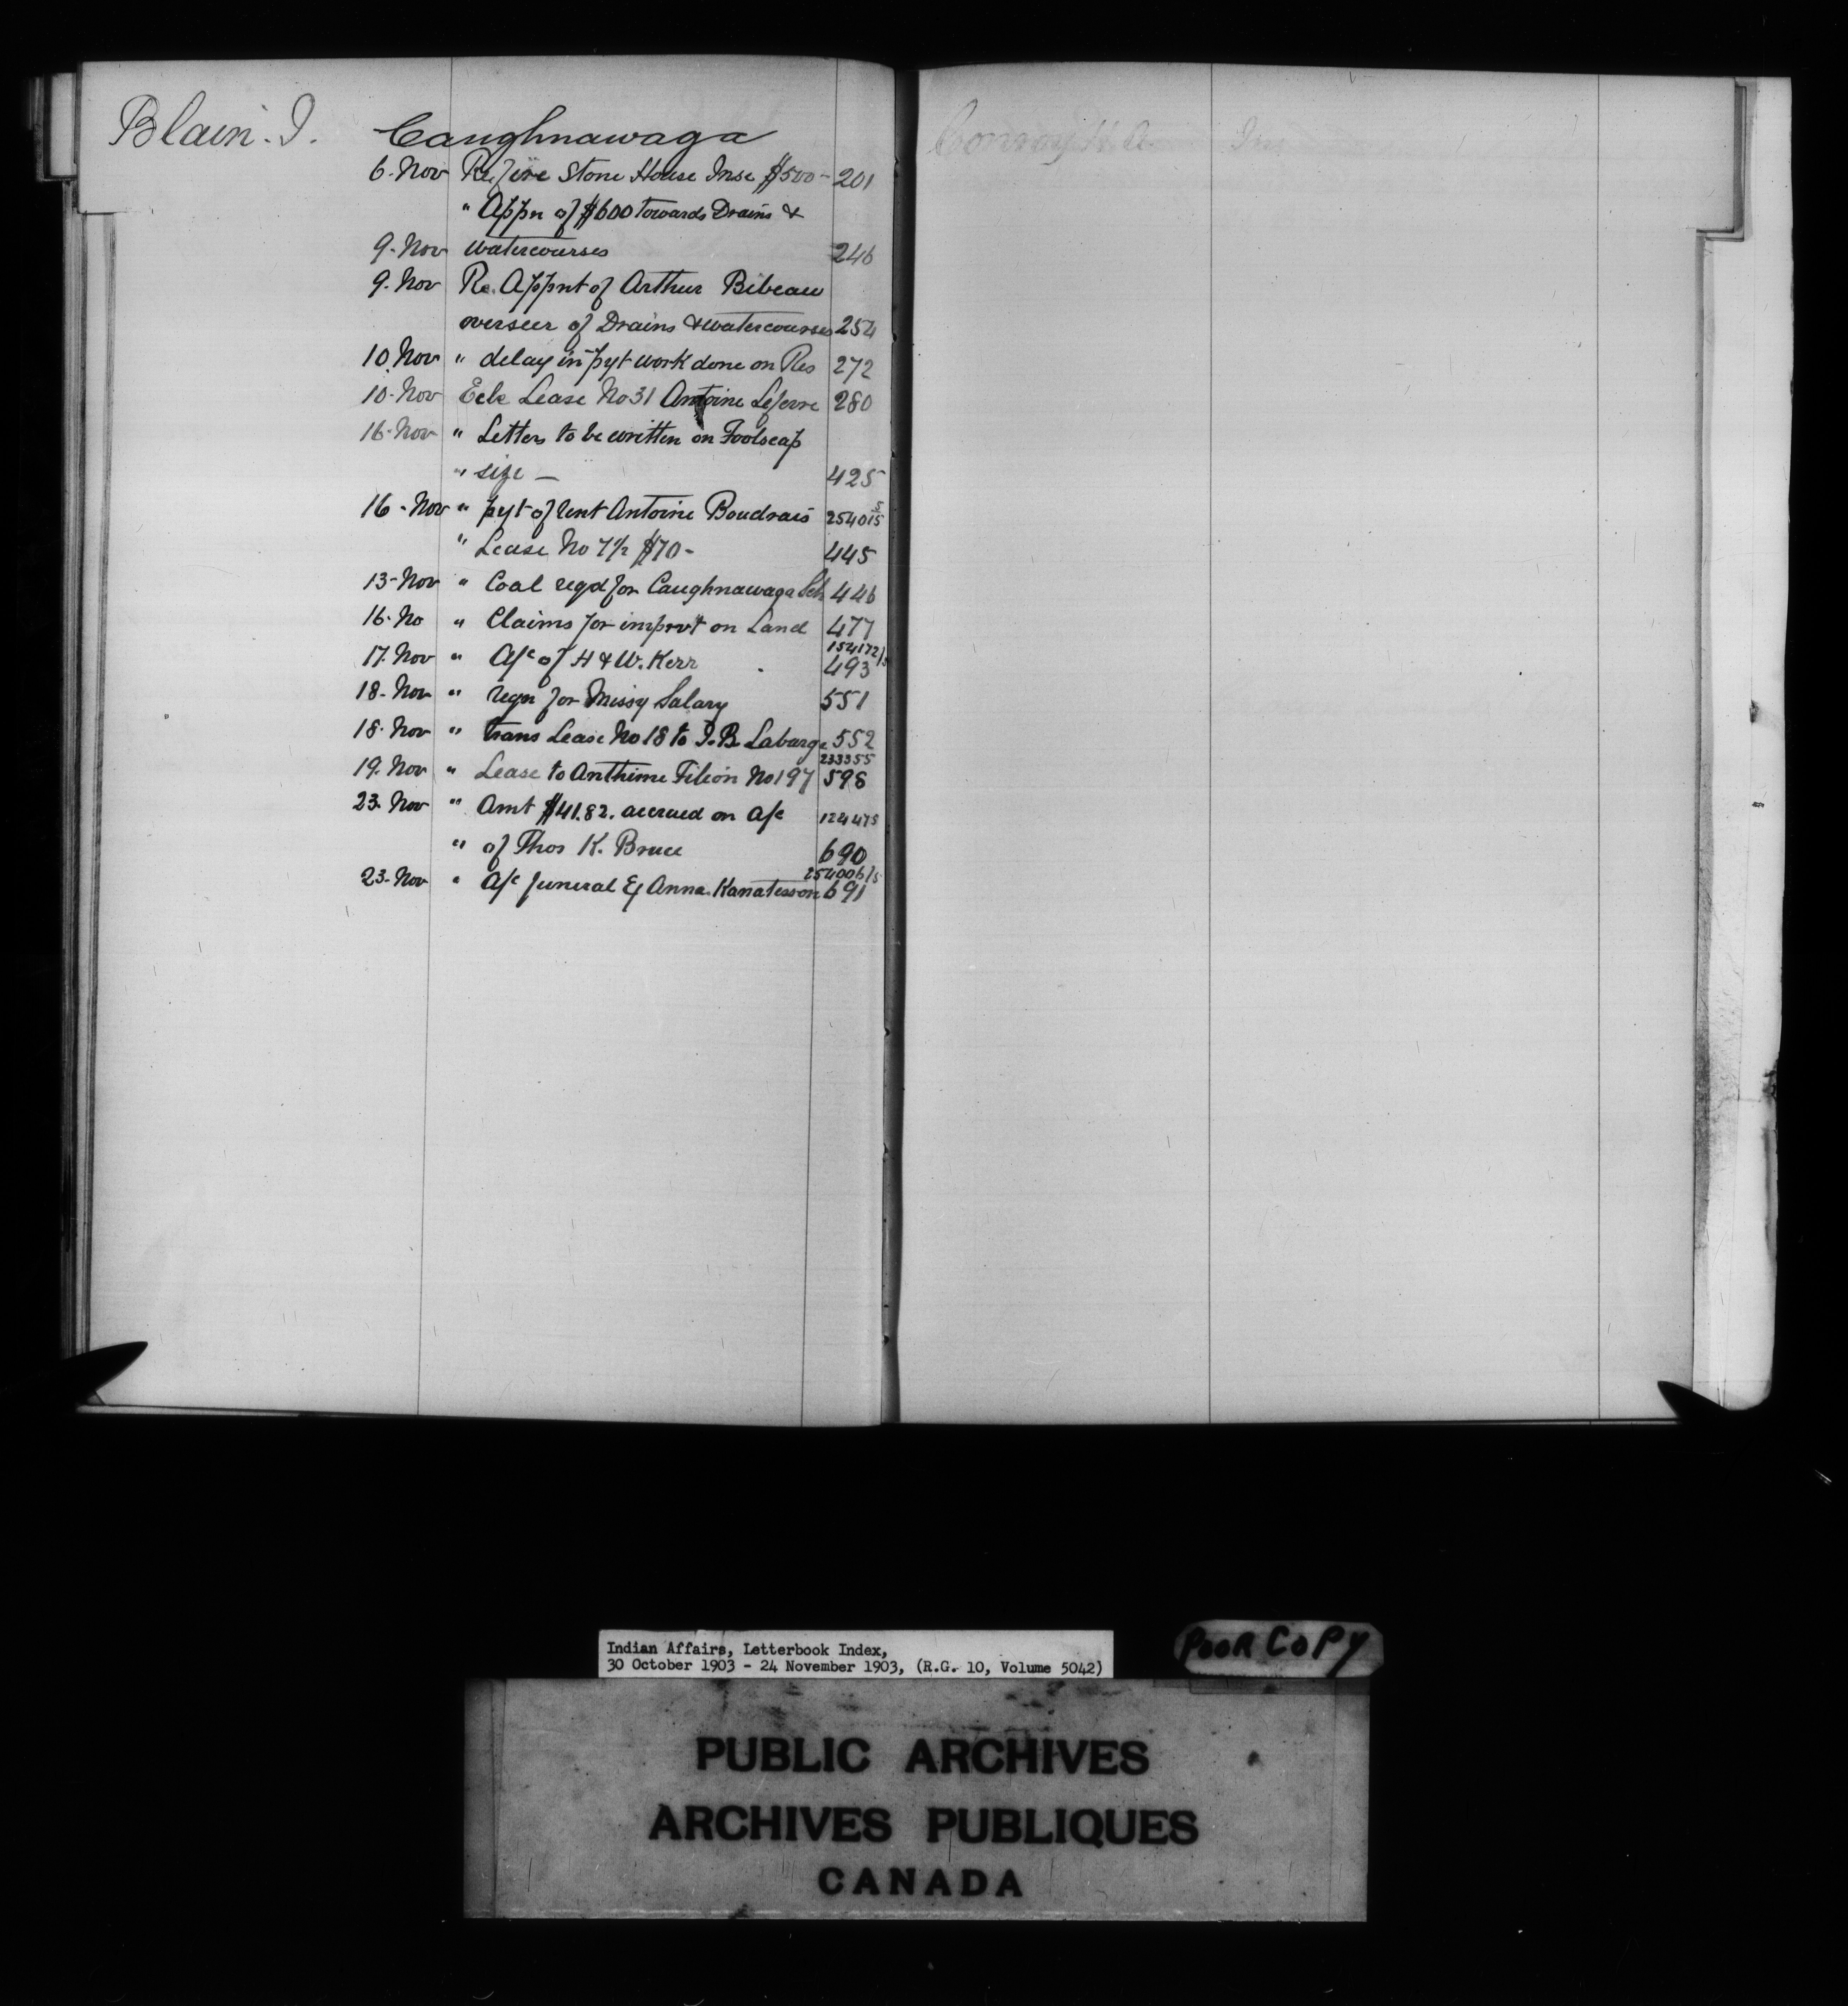 Blain. J. Caughnawaga
6. Nov Re fire Stone House Inse $500- 201
" Appn of $600 towards Drains &
9. Nov watercourses 246
9. Nov Re. Appnt of Arthur Bibeau
overseer of Drains & watercourses 254
10. Nov " delay in pyt work done on Res 272
10. Nov Ecle Lease No 31 Antoine Lefevre 280
16. Nov " Letters to be written on Foolscap
" size — 425
16. Nov " pyt of rent Antoine Boudrais 254015
" Lease No 7 1/2 $70- 445
13. Nov " Coal reqd for Caughnawaga Sch 446
16. No " Claims for imprvt on Land 477
17. Nov " A/c of H & W. Kerr 154172/5 493
18. Nov " reqn for Missy Salary 551
18. Nov " trans Lease No 18 to J. B. Laberge 552
19. Nov " Lease to Anthime Filion No 197 233355 598
23. Nov " Amt $41.82. accrued on a/c 124475
" of Thos K. Bruce 690
23. Nov " A/c funeral Ex Anna. Kanatesson 254006/5 691
Conroy H. A.
Indian Affairs, Letterbook Index,
30 October 1903 - 24 November 1903, (R.G. 10, Volume 5042)
POOR COPY
PUBLIC ARCHIVES
ARCHIVES PUBLIQUES
CANADA